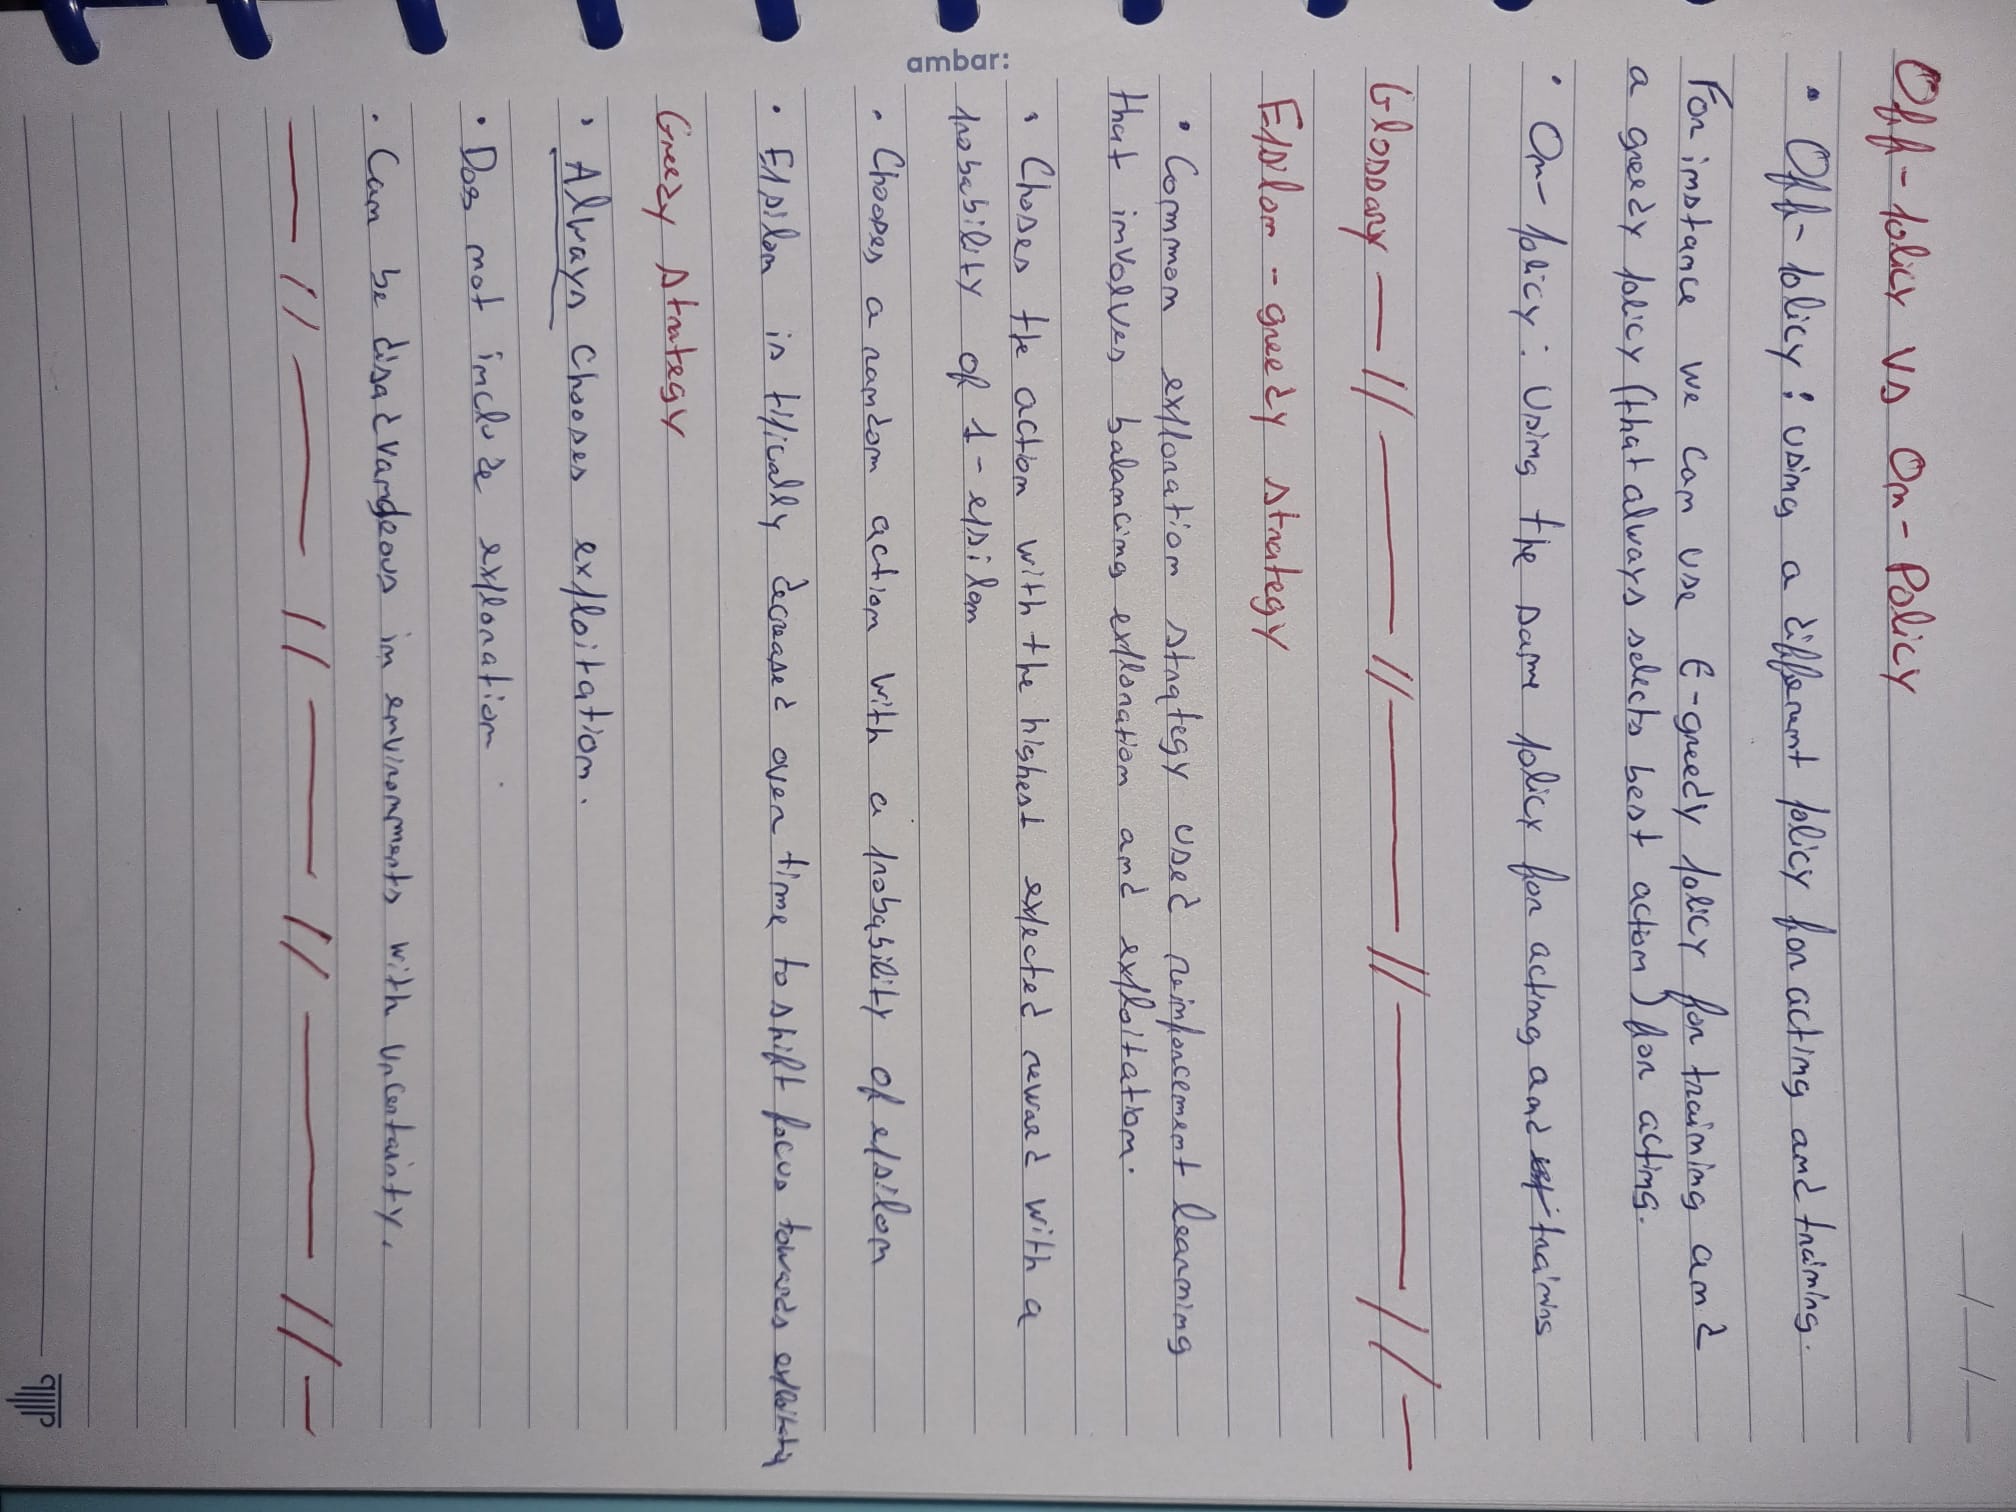 Off-Policy vs On-Policy
• Off-Policy: using a different policy for acting and training.
For instance we can use ε-greedy policy for training and
a greedy policy (that always selects best action) for acting.
• On-policy: Using the same policy for acting and training
Glossary
Epsilon-greedy strategy
• Common exploration strategy used reinforcement learning
that involves balancing exploration and exploitation.
• Choses the action with the highest expected reward with a
probability of 1-epsilon
• Chooses a random action with a probability of epsilon
• Epsilon is tipically decreased over time to shift focus towards exploitation
Greedy strategy
• Always chooses exploitation.
• Dos not include exploration
• Can be disadvandeous in environments with uncertainty.
ambar: